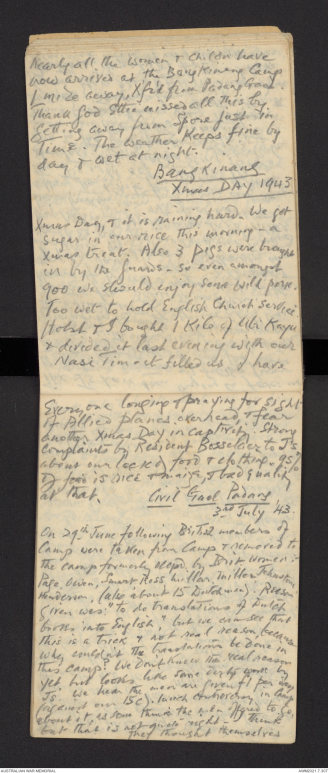 Nearly all the women & children have
now arrived at the Bangkinang Camp
1 mile away, Xf'd from Padang Gaol.
Thank God she missed all this by
getting away from Spore just in
time. The weather keeps fine by
day & wet at night.
Bangkinang
Xmas DAY 1943
Xmas Day, & it is raining hard. We got
sugar in our rice this morning - a
Xmas treat. Also 3 pigs were brought
in by the guards. So even amongst
900 we should enjoy some wild pork.
Too wet to hold English Church service.
& I bought 1 Kilo of Ubi Kayu
& divided it last evening with our
Nasi Tim & it filled us. I have
Everyone longing & praying for sight
of Allied planes overhead & fear
another Xmas Day in captivity. Strong
complaints by Resident to J's
about our lack of food & clothing. 95%
of food is rice & & bad quality
at that.
Civil Gaol Padang
3rd July 43
On 29th June following British members of
Camp were taken from Camp & removed to
the camp formerly by Brit women:
Page, Stuart, Ross,
Henderson, (also about 15 Dutchmen). Reason
given was "to do translations of Dutch
books into English", but we can see that
this is a trick & not real reason because
why couldn't the translations be done in
this camp? We don't know the real reason
yet but looks like some dirty work by
J's. We hear the men are given 1 per day
(against our 15c). Much controversy in camp
about it, as some think the men offered to go,
but that is not quite right. I think
they thought themselves
AUSTRALIAN WAR MEMORIAL